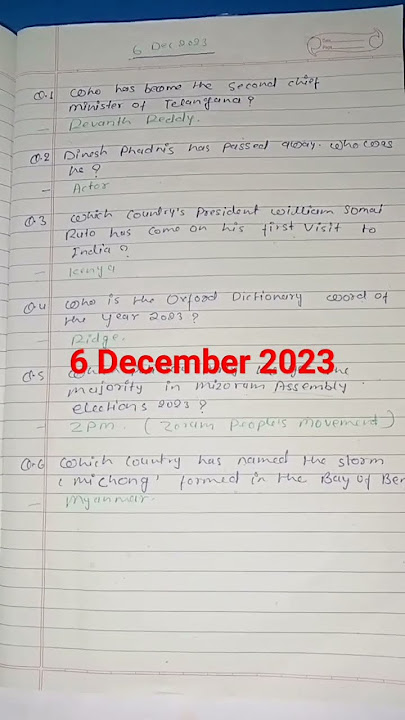 6 Dec 2023
Date
Page
Q.1 Who has become the second chief
minister of Telangana ?
- Revanth Reddy.
Q.2 Dinesh Phadnis has passed away. Who was
he ?
- Actor
Q.3 Which Country's President William Somai
Ruto has come on his first visit to
India ?
- Kenya
Q.4 Who is the Oxford Dictionary word of
the year 2023 ?
- Ridge.
6 December 2023
Q.5
majority in mizoram Assembly
elections 2023 ?
- ZPM. ( Zoram people's movement)
Q.6 Which Country has named the storm
'michong' formed in the Bay of Ben
- Myanmar.